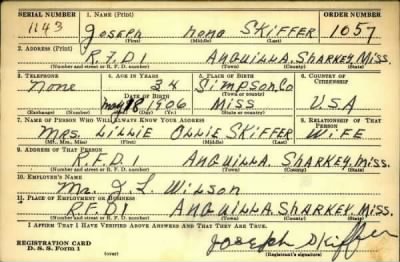 SERIAL NUMBER 1. NAME (Print) ORDER NUMBER
1143 Joseph none SKIFFER 1057
2. ADDRESS (Print)
R.F.D 1 ANGUILLA. SHARKEY. MISS.
(Number and street or R. F. D. number) (Town) (County) (State)
3. TELEPHONE 4. AGE IN YEARS 5. PLACE OF BIRTH 6. COUNTRY OF CITIZENSHIP
None 34 SimPson.Co
DATE OF BIRTH (Town or county)
May 18, 1906 MISS U.S.A
(Exchange) (Number) (Mo.) (Day) (Yr.) (State or country)
7. NAME OF PERSON WHO WILL ALWAYS KNOW YOUR ADDRESS 8. RELATIONSHIP OF THAT PERSON
MRS. LILLIE OLLIE SKIFFER WIFE
(Mr., Mrs., Miss) (First) (Middle) (Last)
9. ADDRESS OF THAT PERSON
R.F.D 1 ANGUILLA. SHARKEY. MISS.
(Number and street or R. F. D. number) (Town) (County) (State)
10. EMPLOYER'S NAME
Mr. J. L. WILSON
11. PLACE OF EMPLOYMENT OR BUSINESS
R.F.D 1 ANGUILLA. SHARKEY. MISS.
(Number and street or R. F. D. number) (Town) (County) (State)
I AFFIRM THAT I HAVE VERIFIED ABOVE ANSWERS AND THAT THEY ARE TRUE.
REGISTRATION CARD Joseph Skiffer
D. S. S. Form 1 (over) (Registrant's signature)